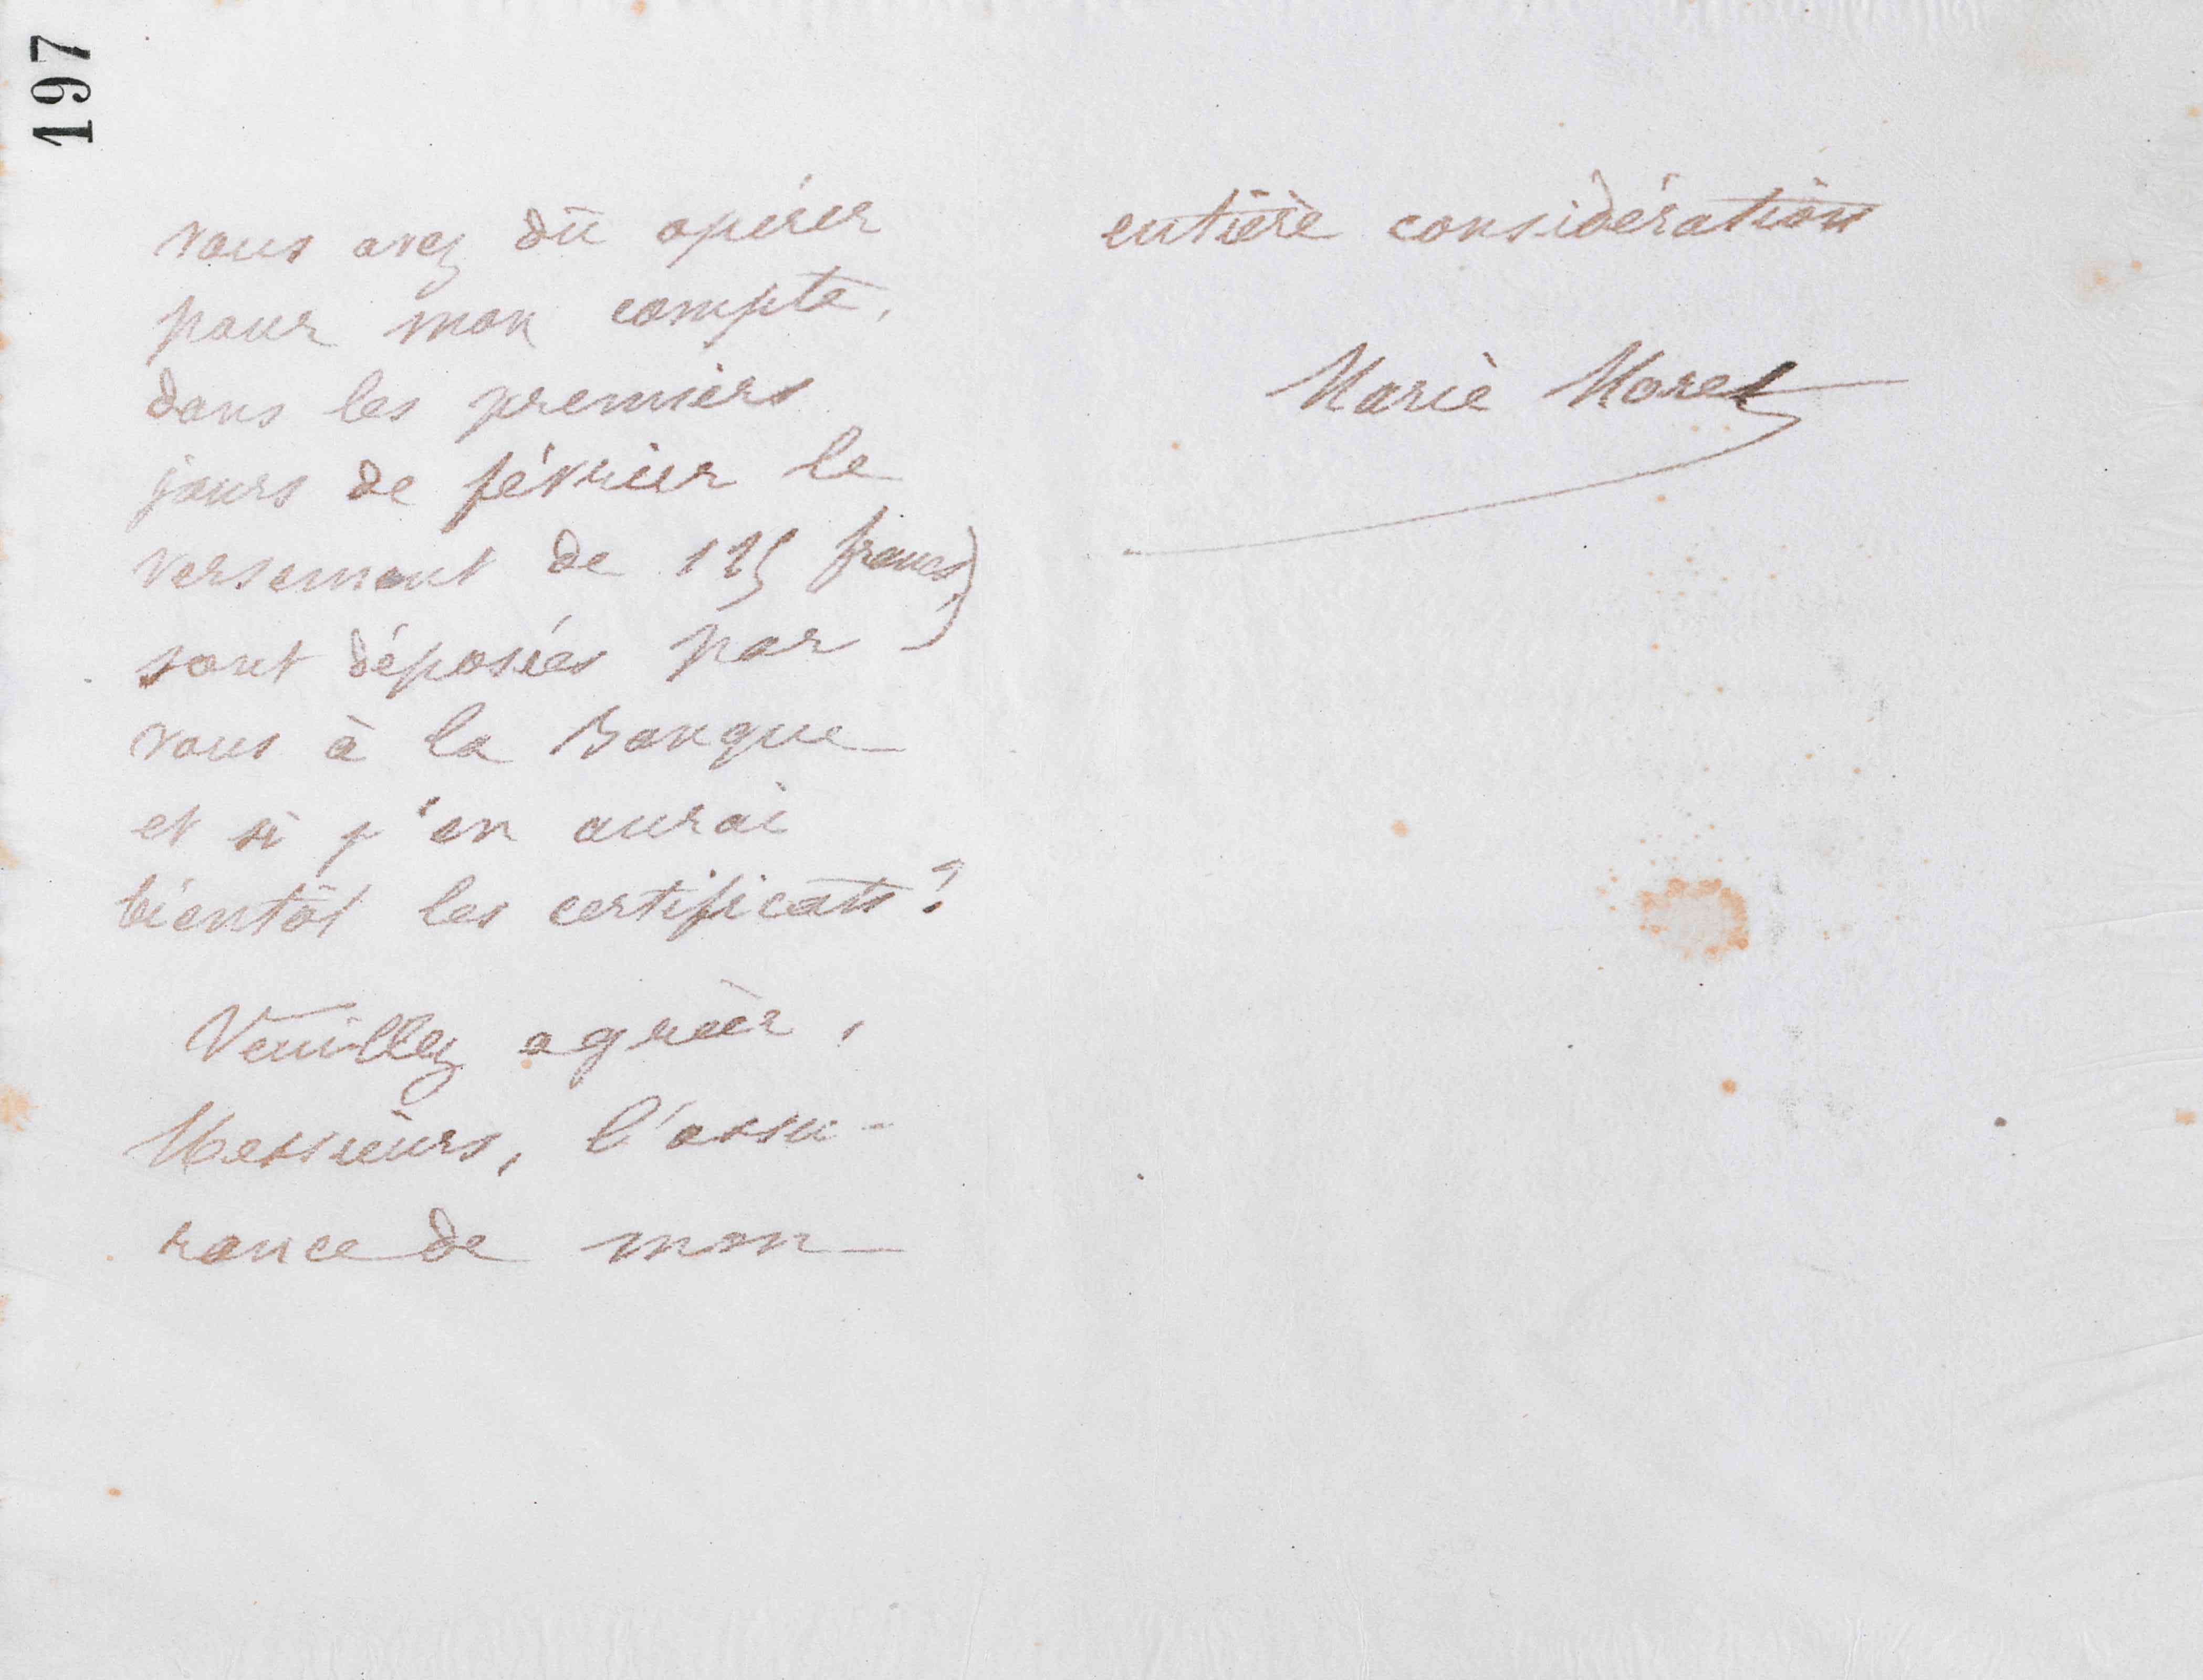 197
vous avez dû opérer
pour mon compte,
dans les premiers
jours de février le
versement de 125 francs)
sont déposées par
vous à la Banque
et si j'en aurai
bientôt les certificats?
Veuillez agréer,
Messieurs, l'assu-
rance de mon
entière considération
Marie Moret